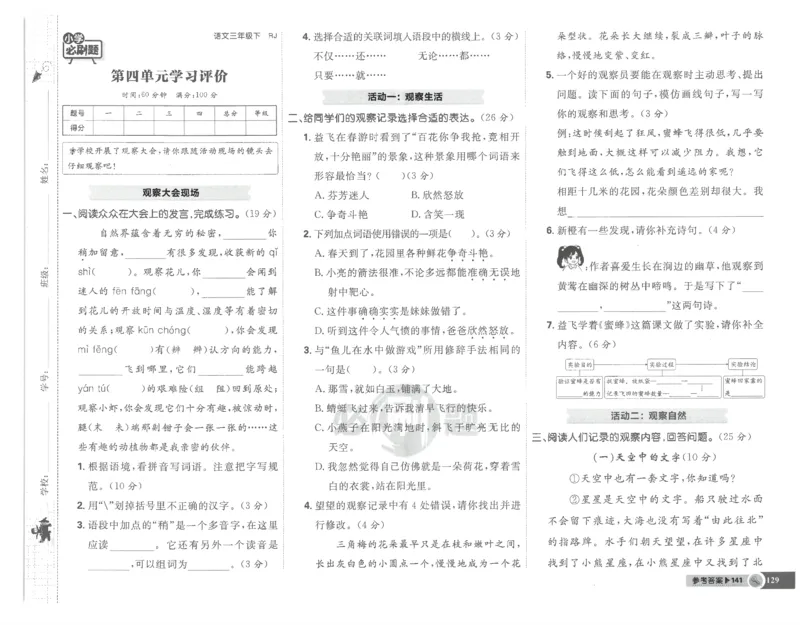 小学
必刷题
语文三年级下 RJ
第四单元学习评价
时间:60分钟 满分:100分
题号 一 二 三 四 总分 等级
得分
学校开展了观察大会,请你跟随活动现场的镜头去
仔细观察吧!
观察大会现场
一、阅读众众在大会上的发言,完成练习。(19分)
自然界蕴含着无穷的秘密,________你
稍加留意,________有很多发现,收获新的 qǐ
shì( )。观察花儿,你________会闻到
迷人的 fēn fāng( ),________能了解
到花儿的开放时间与温度、湿度等有着密切
的关系;观察 kūn chóng( ),你会发现
mì fēng( )有(辨 辩)认方向的能力,
________飞到哪里,它们________能跨越
yán tú( )的艰难险(组 阻)回到原处;
观察小虾,你会发现它们十分有趣,被惊动时,
腿(木 末)端那副钳子会一张一张的……这
些有趣的动植物都是我亲密的伙伴。
1. 根据语境,看拼音写词语。注意把字写规
范。(10分)
2. 用“\”划掉括号里不正确的汉字。(3分)
3. 语段中加点的“稍”是一个多音字,在这里
应读________。它还有另外一个读音是
________,可以组词为________。(3分)
姓名:
班级:
学号:
学校:
4. 选择合适的关联词填入语段中的横线上。(3分)
不仅……还…… 无论……都……
只要……就……
活动一:观察生活
二、给同学们的观察记录选择合适的表达。(26分)
1. 益飞在春游时看到了“百花你争我抢,竞相开
放,十分艳丽”的景象,这种景象用哪个词语来
形容最恰当?( )(3分)
A. 芬芳迷人 B. 欣然怒放
C. 争奇斗艳 D. 含笑一现
2. 下列加点词语使用错误的一项是( )。(3分)
A. 春天到了,花园里各种鲜花争奇斗艳。
B. 小亮的箭法很准,不论多远都能准确无误地
射中靶心。
C. 这件事确确实实是妹妹做错了。
D. 听到这件令人气愤的事情,爸爸欣然怒放。
3. 与“鱼儿在水中做游戏”所用修辞手法相同的
一句是( )。(3分)
A. 那雪,就如白玉,铺满了大地。
B. 蜻蜓飞过来,告诉我清早飞行的快乐。
C. 小燕子在阳光满地时,斜飞于旷亮无比的
天空。
D. 我忽然觉得自己仿佛就是一朵荷花,穿着雪
白的衣裳,站在阳光里。
4. 望望的观察记录中有4处错误,请你找出并进
行修改。(4分)
三角梅的花朵最早只是在枝和嫩叶之间,
长出灰白色的小圆点一个,慢慢地成为一个花
朵型状。花朵长大继续,裂成三瓣,叶子的脉
络,慢慢地变萦、变红。
5. 一个好的观察员要能在观察时主动思考、提出
问题。读下面的句子,模仿画线句子,写一写
你的观察和思考。(3分)
例:这时候刮起了狂风,蜜蜂飞得很低,几乎要
触到地面,大概这样可以减少阻力。我想,它
们飞得这么低,怎么能看到遥远的家呢?
相距十几米的花园,花朵颜色差别却很大。我
想________
6. 新橙有一些发现,请你补充诗句。(4分)
:作者喜爱生长在涧边的幽草,他观察到
黄莺在幽深的树丛中啼鸣。于是写下了“____
________,________”这两句诗。
7. 益飞学着《蜜蜂》这篇课文做了实验,请你补全
内容。(6分)
实验目的 实验过程 实验结论
验证蜜蜂是否有 捉蜜蜂、做纸袋——____——____ 蜜蜂回家靠的
____的能力 记录飞回的蜜蜂数量——____ 是____
活动二:观察自然
三、阅读人们记录的观察内容,回答问题。(25分)
(一)天空中的文字(10分)
①天空中也有一套文字,你知道吗?
②星星是天空中的文字。船只驶过水面
不会留下痕迹,大海也没有写着“由此往北”
的指路牌。水手们朝天望望,在许多星座中
找到了小熊星座,在小熊星座中又找到了北
参考答案▶141 129